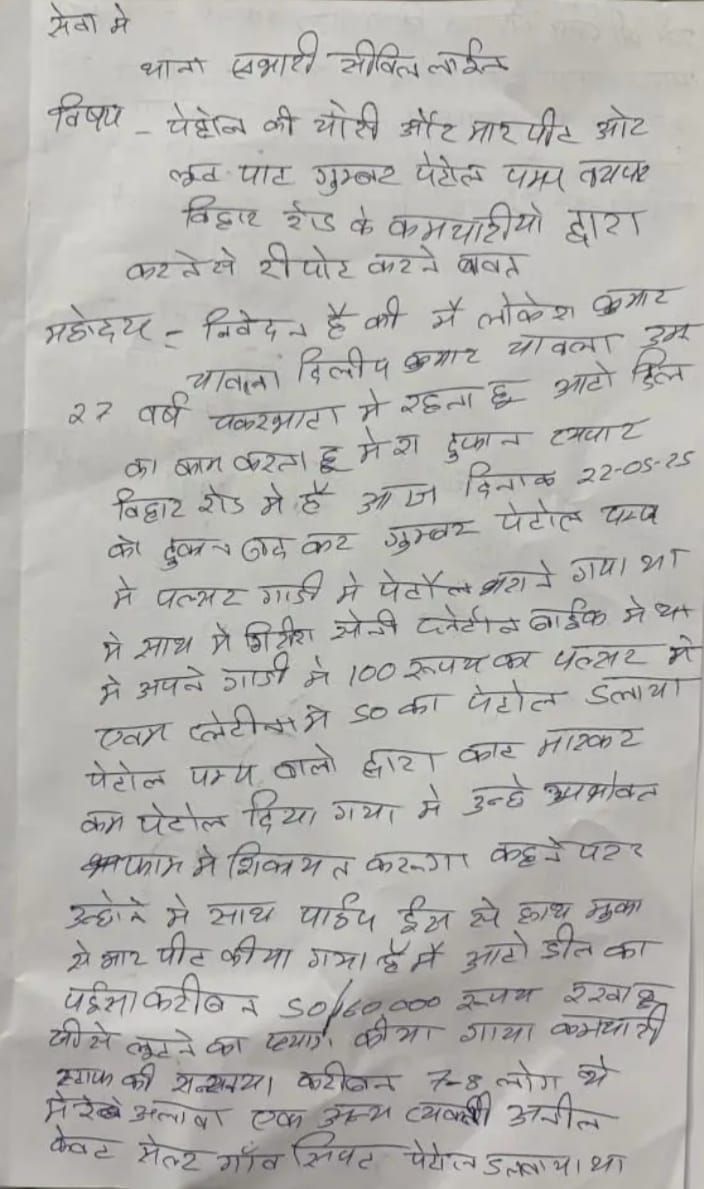 सेवा मे
थाना प्रभारी सीविल लाईन
विषय - पेट्रोल की चोरी और मारपीट ओर
लुट पाट गुम्बर पेट्रोल पम्प व्यपार
विहार रोड के कर्मचारीयो द्वारा
करने से रीपोट करने बावत
महोदय - निवेदन है की मै लोकेश कुमार
चावला दिलीप कुमार चावला उम्र
27 वर्ष चकरभाटा मे रहता हू आटो डिल
का काम करता हू मेरा दुकान व्यपार
विहार रोड मे है आज दिनाक 22-05-25
को दुकान बंद कर गुम्बर पेटोल पम्प
मे पल्सर गाडी मे पेटौल भराने गया था
मे साथ मे गिरीश सोनी प्लेटीना बाईक मे था
मे अपने गाडी मे 100 रूपय का पल्सर मे
एवम प्लेटीना मे 50 का पेटोल डलाया
पेटोल पम्प वालो द्वारा काट मारकर
कम पेटोल दिया गया मे उन्हे उपभोक्त
फाम मे शिकायत करूगा कहने पर
उन्होने मे साथ पाईप ईस से हाथ मुका
से मार पीट कीया गया है मै आटो डील का
पईसा करीबन 50/60,000 रूपय रखा हू
जीसे लुटने का प्यास कीया गाया कमचारी
स्टाफ की सन्ख्या करीबन 7-8 लोग थे
मेरे अलावा एक अन्य व्यक्ती अनील
केवट सेलर गाँव सिपट पेटोल डलवाया था